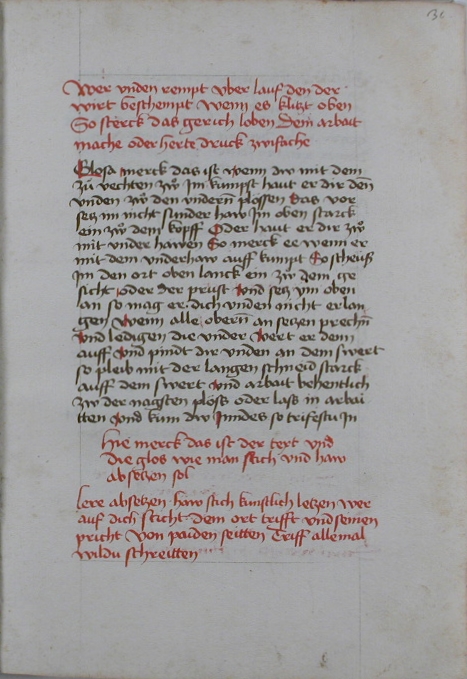 31
Wer vnden rempt vber lauf den der
wirt beschempt wenn es klitzt oben
So sterck das gerich loben Dein arbait
mache oder herte druck zwifache
Glosa merck das ist wenn dw mit dem
zu vechten zw Im kumpst haut er dir den
vnden zw den vndern plossen das vor
setz im nicht Sunder haw Im oben starck
ein zw dem kopff Oder haut er dir zw
mit vnder hawen So merck ee wenn er
mit dem vnderhaw auff kumpt So scheuß
Im den ort oben lanck ein zw dem ge
sicht oder der prust vnd setz im oben
an so mag er dich vnden nicht erlan
gen Wenn alle obern an setzen prechn
vnd ledigen die vnder Wert er denn
auff vnd pindt dir vnden an dem swert
so pleib mit der langen schneid starck
auff dem swert vnd arbait behentlich
zw der nagsten plöss oder lass in arbai
tten vnd kum dw Inndes so trifestu In
hie merck das ist der text vnd
die glos wie man stich vnd haw
absetzen sol
lere absetzen haw stich kunstlich letzen wer
auf dich sticht dein ort trifft vnd seinen
pricht von paiden seitten Triff allemal
wildu schreitten